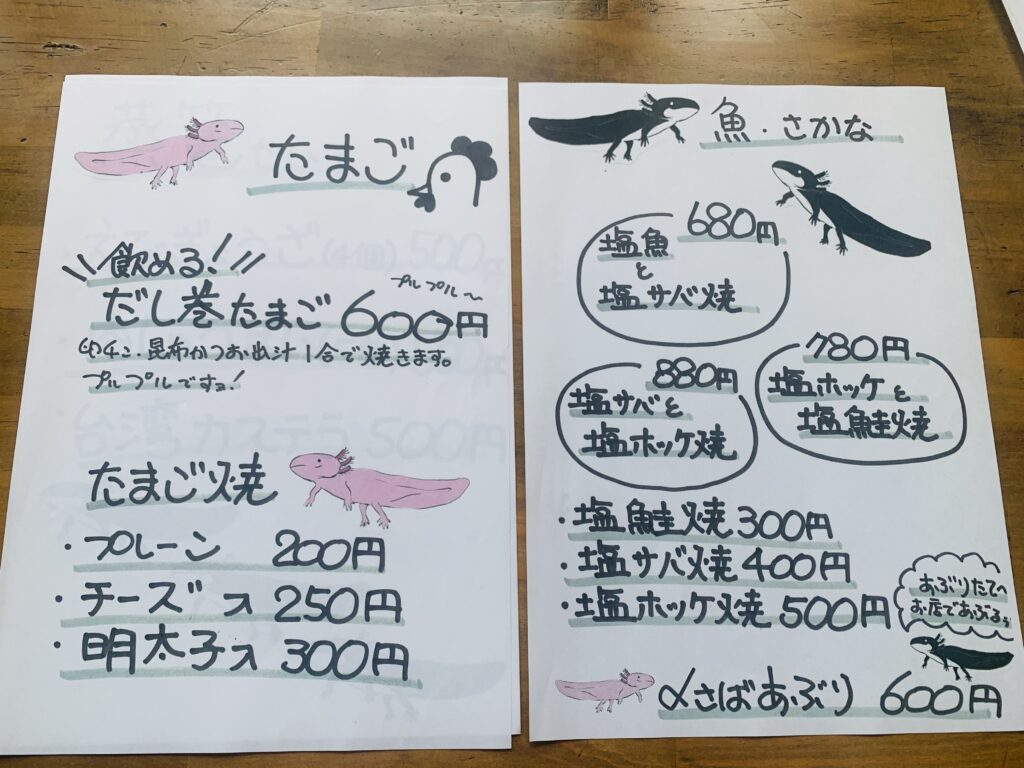 たまご
飲める!
プルプル〜
だし巻たまご 600円
昆布かつお出汁1合で焼きます。
プルプルですョ!
たまご焼
・プレーン 200円
・チーズ入 250円
・明太子入 300円
魚・さかな
680円
塩魚
と
塩サバ焼
780円
塩ホッケと
塩鮭焼
880円
塩サバと
塩ホッケ焼
・塩鮭焼 300円
・塩サバ焼 400円
・塩ホッケ焼 500円
あぶりたて〜
お店であぶる。
〆さばあぶり 600円
台湾カステラ 500円